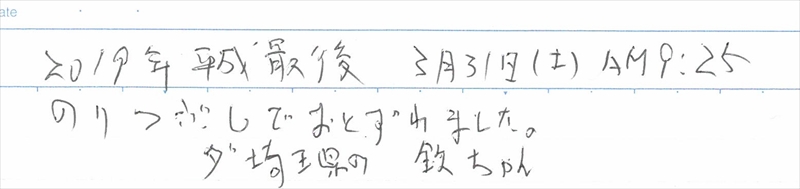 ate
2019年 平成最後 3月31日(土) AM9:25
のりつぶしでおとずれました。
ダ埼玉県の 欽ちゃん